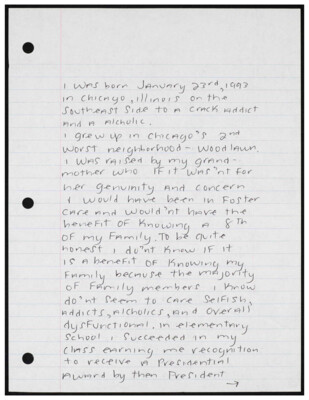 I was born January 23rd, 1992
in Chicago, Illinois on the
Southeast Side to a crack addict
and a alcholic.
I grew up in Chicago's 2nd
worst neighborhood - Woodlawn.
I was raised by my grand-
mother who IF it was'nt for
her genuinity and concern
I would have been in Foster
Care and would'nt have the
beneFit OF Knowing a 8th
OF my Family. To be quite
honest I do'nt Know IF it
is a beneFit OF Knowing my
Family because the majority
OF Family members I Know
do'nt Seem to care SelFish,
addicts, alcholics, and overall
dysFunctional. in elementary
School I Succeeded in my
class earning me recognition
to receive a Presidential
Award by then President
→